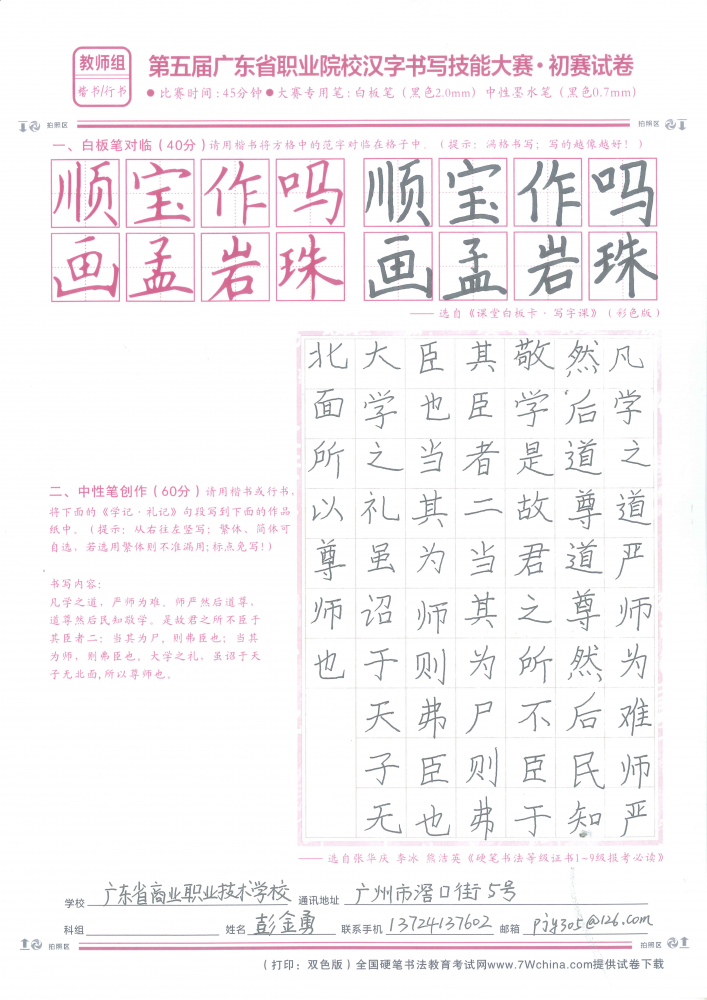 教师组
楷书/行书
第五届广东省职业院校汉字书写技能大赛·初赛试卷
●比赛时间:45分钟●大赛专用笔:白板笔(黑色2.0mm)中性墨水笔(黑色0.7mm)
拍照区
拍照区
一、白板笔对临(40分)请用楷书将方格中的范字对临在格子中。(提示:满格书写;写的越像越好!)
顺宝作吗
画孟岩珠
顺宝作吗
画孟岩珠
——选自《课堂白板卡·写字课》(彩色版)
二、中性笔创作(60分)请用楷书或行书,
将下面的《学记·礼记》句段写到下面的作品
纸中。(提示:从右往左竖写;繁体、简体可
自选,若选用繁体则不准漏用;标点免写!)
书写内容:
凡学之道,严师为难。师严然后道尊,
道尊然后民知敬学。是故君之所不臣于
其臣者二:当其为尸,则弗臣也;当其
为师,则弗臣也。大学之礼,虽诏于天
子无北面,所以尊师也。
凡学之道严师为难师严
然后道尊道尊然后民知
敬学是故君之所不臣于
其臣者二当其为尸则弗
臣也当其为师则弗臣也
大学之礼虽诏于天子无
北面所以尊师也
——选自张华庆 李冰 熊洁英《硬笔书法等级证书1~9级报考必读》
学校 广东省商业职业技术学校 通讯地址 广州市滘口街5号
科组 姓名 彭金勇 联系手机 13724137602 邮箱 pjy305@126.com
拍照区
拍照区
(打印:双色版)全国硬笔书法教育考试网www.7Wchina.com提供试卷下载